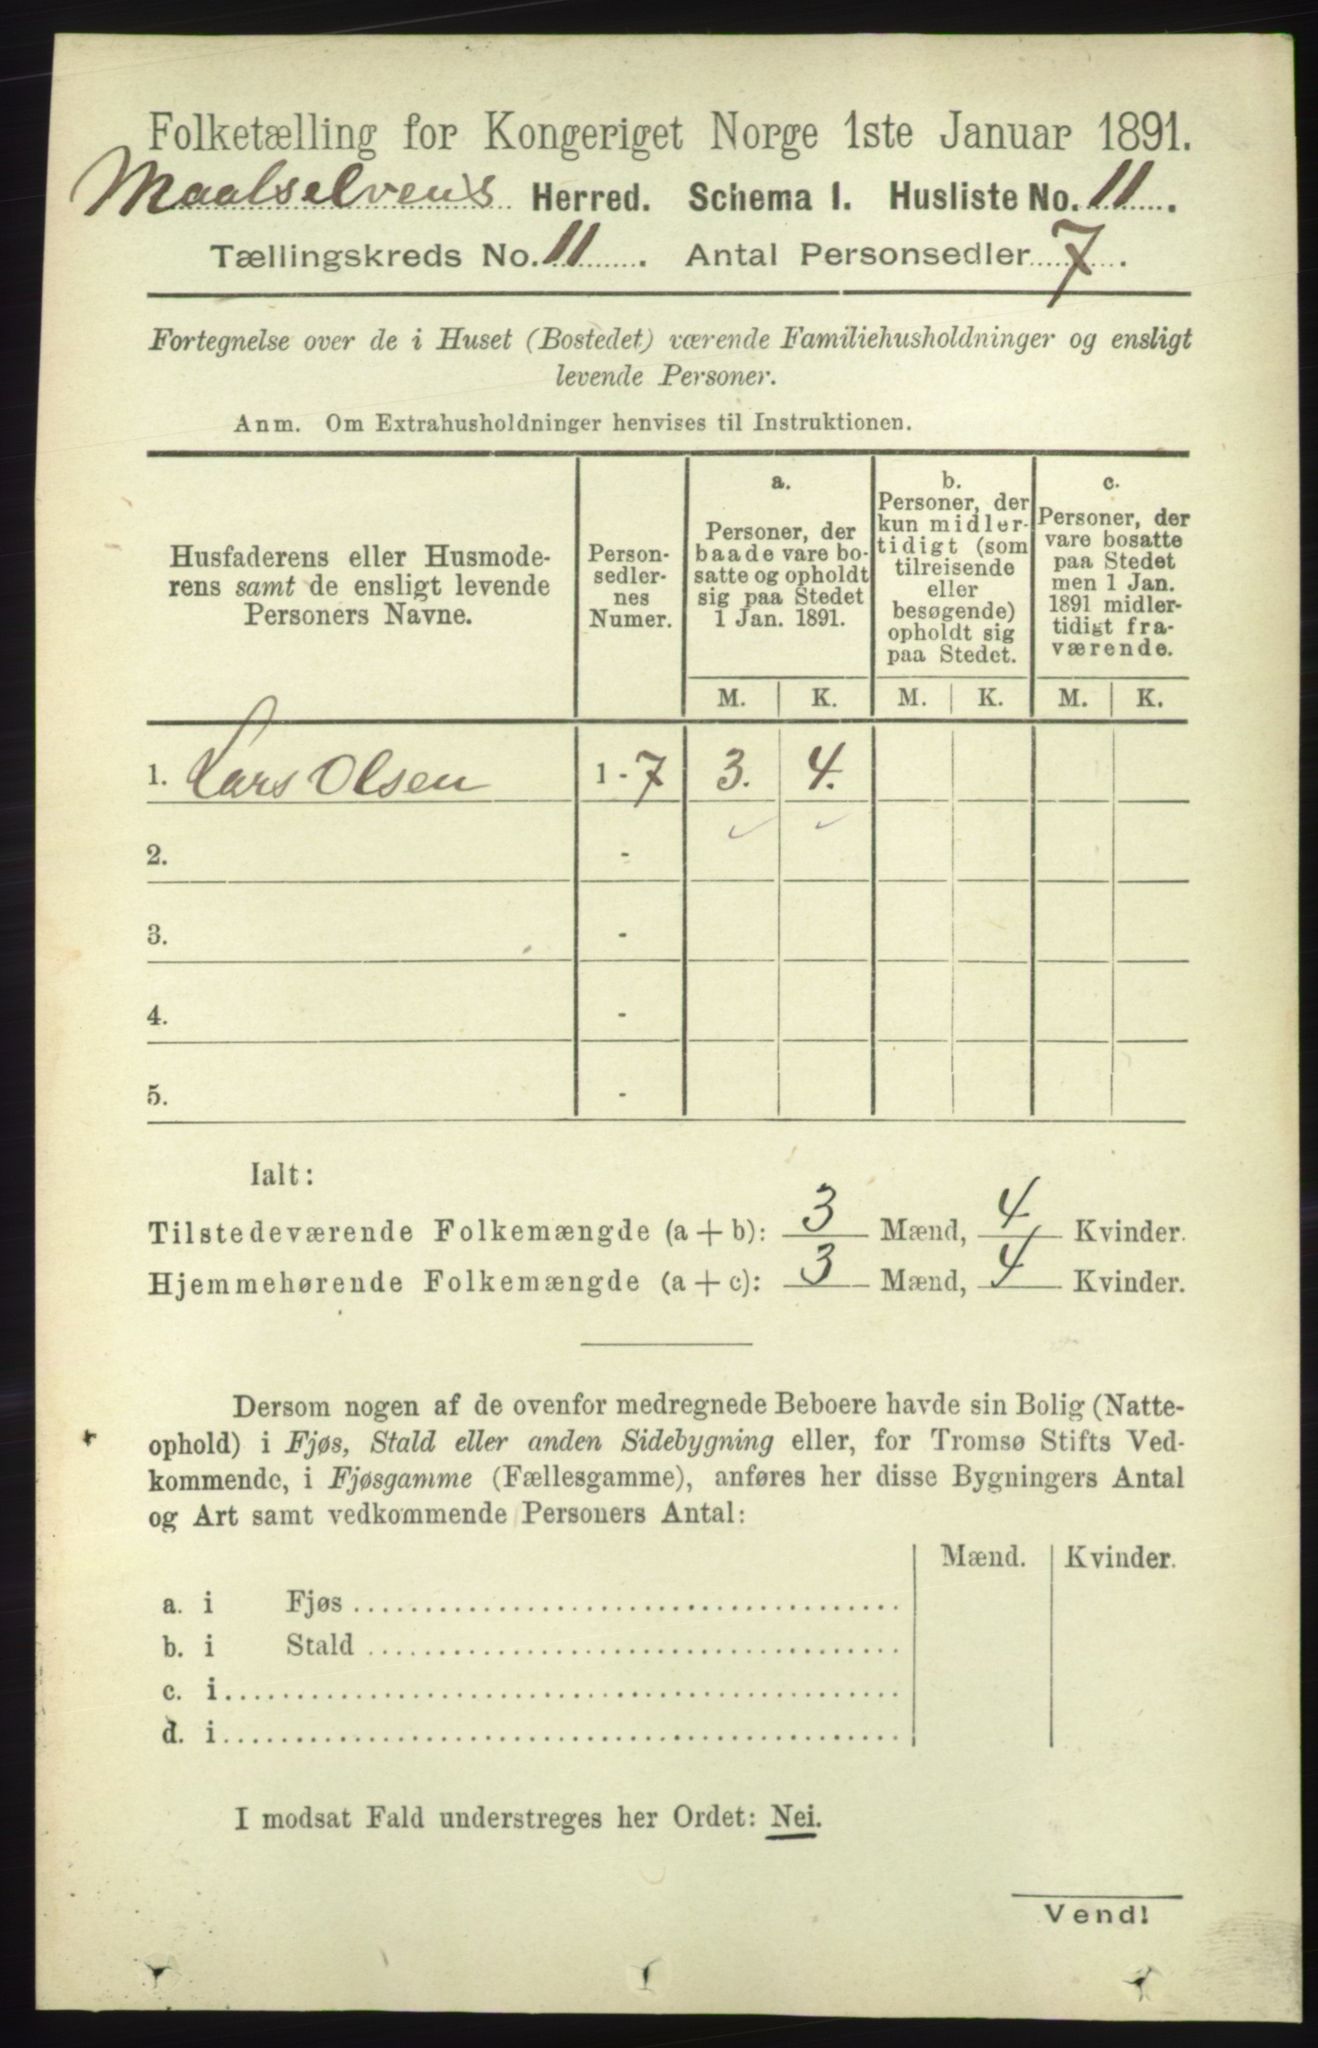 Folketælling for Kongeriget Norge 1ste Januar 1891.
Maalselvens Herred. Schema I. Husliste No. 11.
Tællingskreds No. 11. Antal Personsedler 7.
Fortegnelse over de i Huset (Bostedet) værende Familiehusholdninger og ensligt
levende Personer.
Anm. Om Extrahusholdninger henvises til Instruktionen.
Husfaderens eller Husmode-
rens samt de ensligt levende
Personers Navne.
Person-
sedler-
nes
Numer.
a.
Personer, der
baade vare bo-
satte og opholdt
sig paa Stedet
1 Jan. 1891.
b.
Personer, der
kun midler-
tidigt (som
tilreisende
eller
besøgende)
opholdt sig
paa Stedet.
c.
Personer, der
vare bosatte
paa Stedet
men 1 Jan.
1891 midler-
tidigt fra-
værende.
M. K. M. K. M. K.
1. Lars Olsen 1 - 7 3. 4.
2. -
3. -
4. -
5. -
Ialt:
Tilstedeværende Folkemængde (a + b): 3 Mænd, 4 Kvinder.
Hjemmehørende Folkemængde (a + c): 3 Mænd, 4 Kvinder.
Dersom nogen af de ovenfor medregnede Beboere havde sin Bolig (Natte-
ophold) i Fjøs, Stald eller anden Sidebygning eller, for Tromsø Stifts Ved-
kommende, i Fjøsgamme (Fællesgamme), anføres her disse Bygningers Antal
og Art samt vedkommende Personers Antal:
Mænd. Kvinder.
a. i Fjøs
b. i Stald
c. i
d. i
I modsat Fald understreges her Ordet: Nei.
Vend!